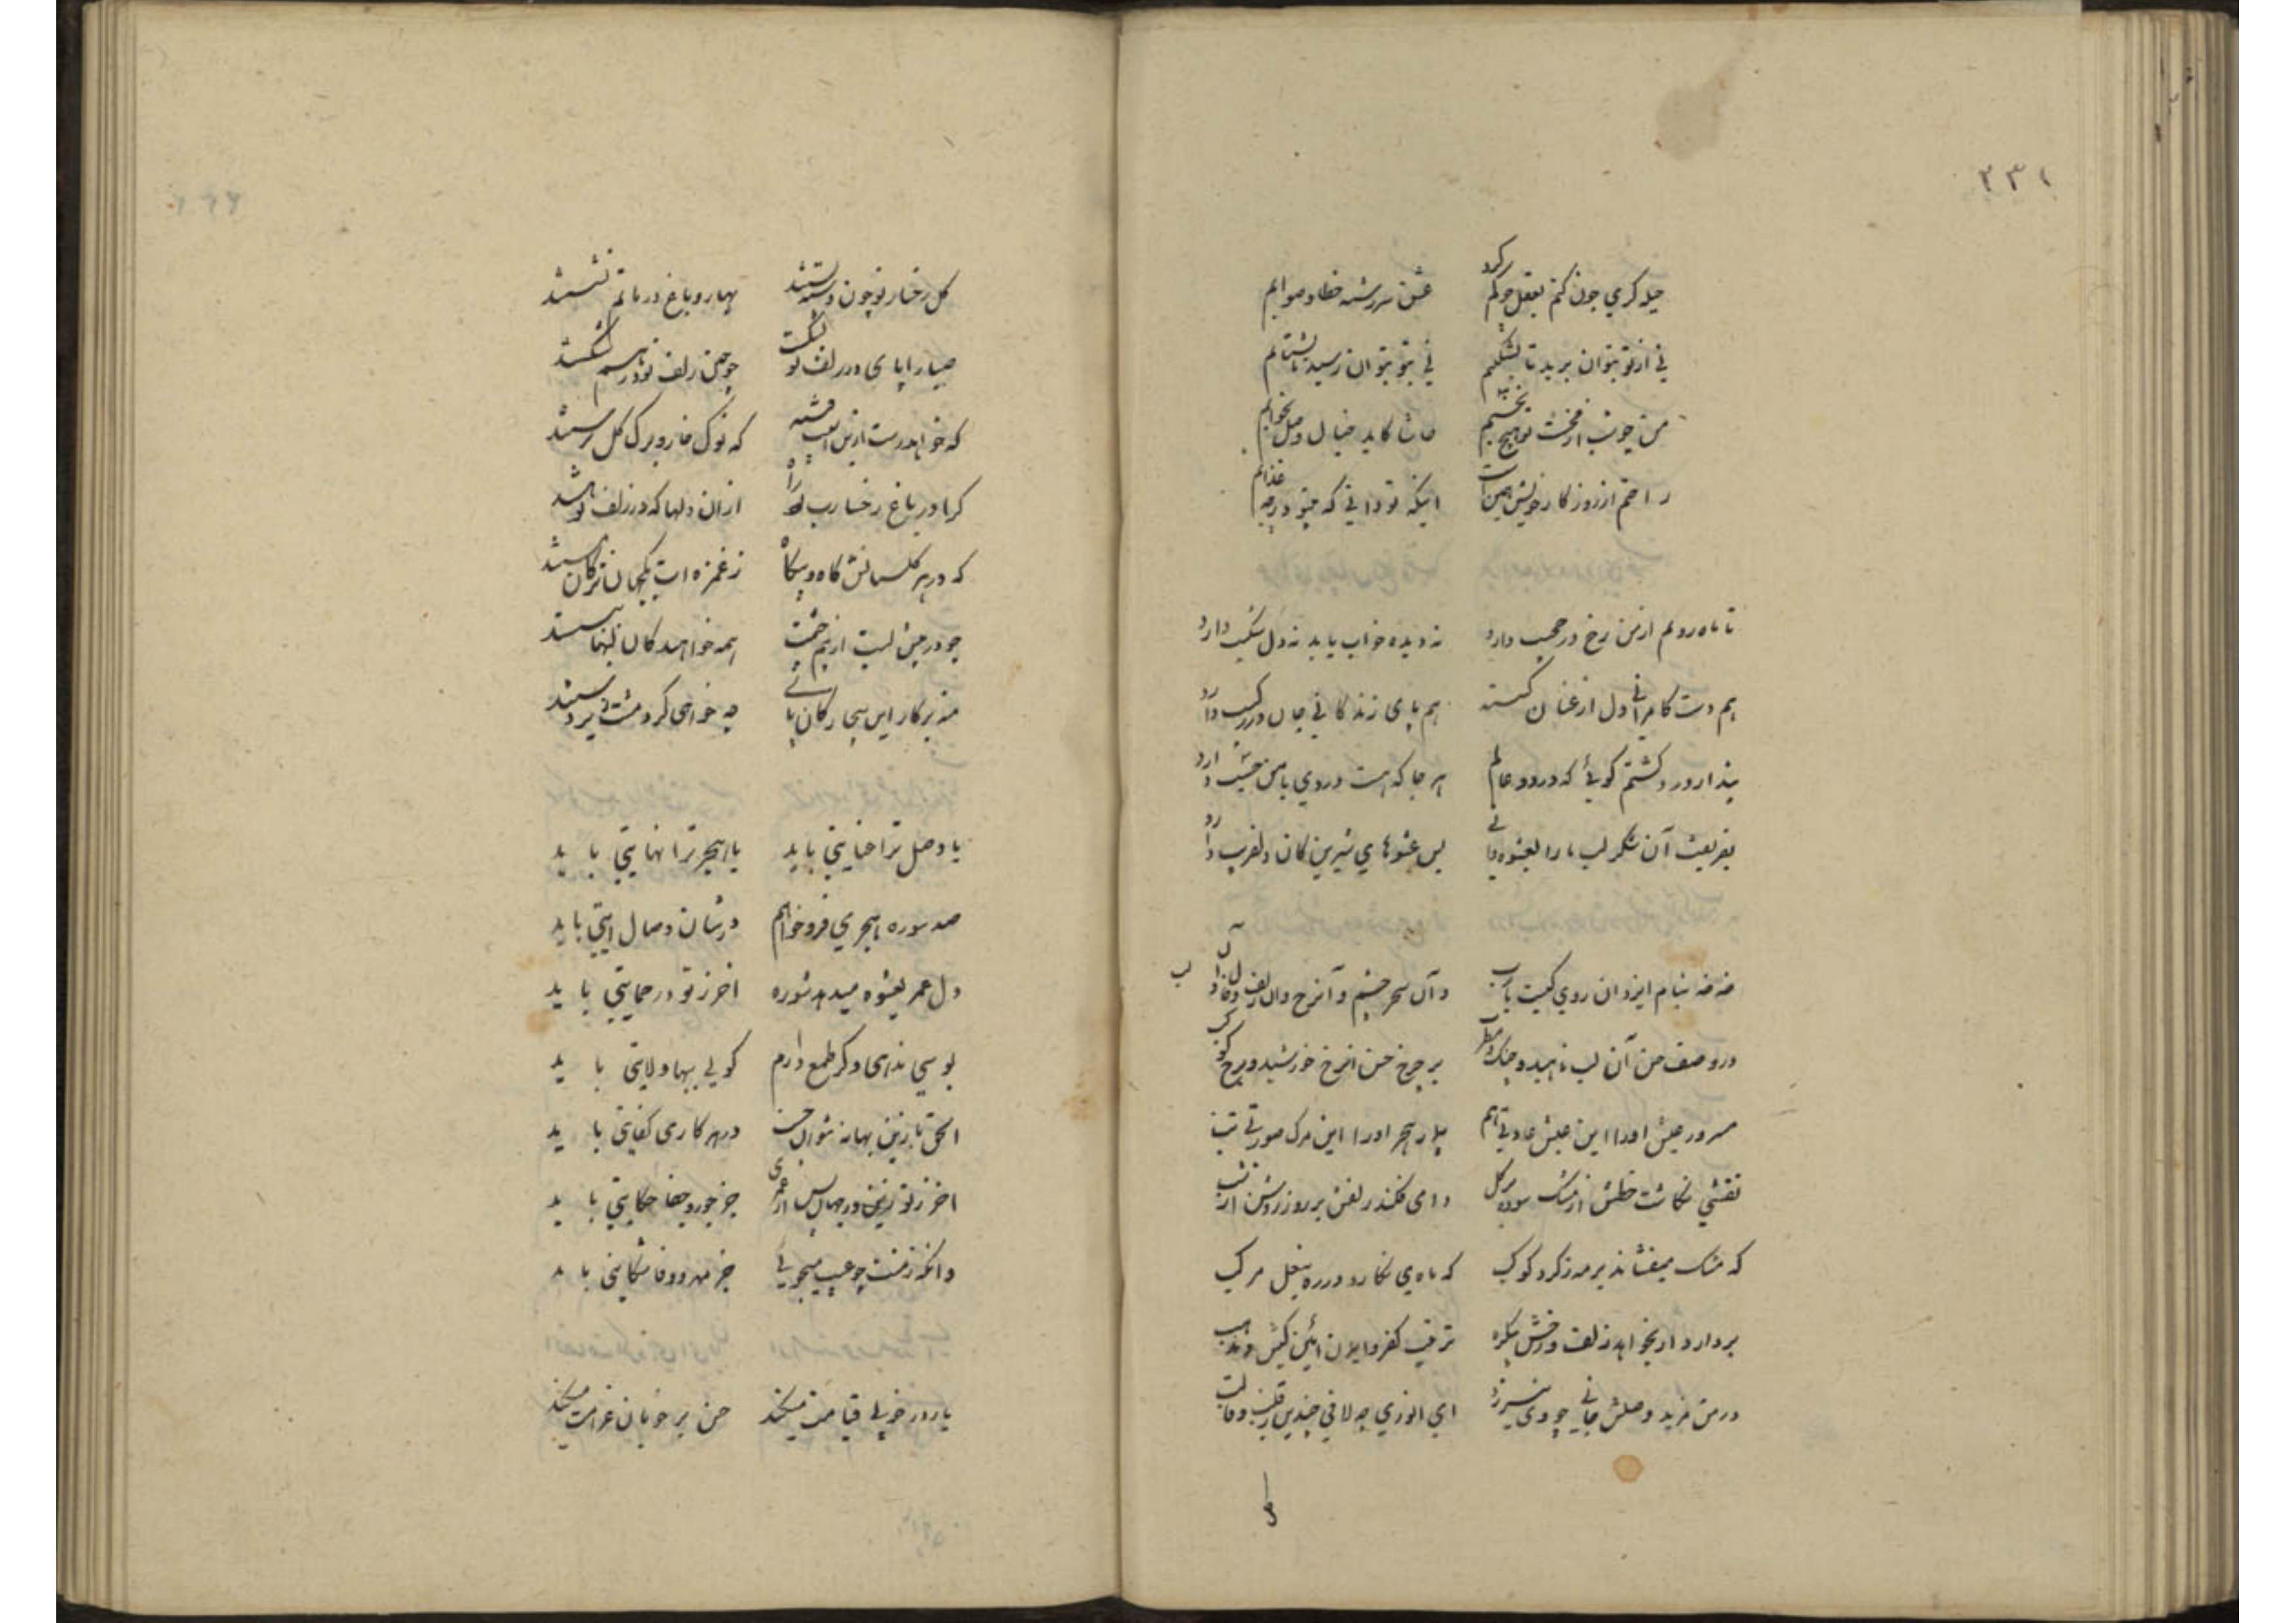 ۲۳۱
حیله کری چون کنم بعقل چو کم کرد عشق سررشته خطا و صوابم
نی از تو بتوان برید تا بشکیبم نی بتو بتوان رسید تا بشتابم
من چو شب از محنت تو هیچ نخسبم حاشا کاید خیال وصل بخوابم
راحتم از روزگار خویش همین است اینکه تو دانی که بیتو در چه عذابم
تا ماه رویم از من رخ در حجیب دارد نه دیده خواب یابد نه دل شکیب دارد
هم دست کامرانی دل از عنان کسسته هم پای زندکانی جان در رکیب دارد
پندار درد کشتم کوئی که در دو عالم هر جا که هست دردی با من حسیب دارد
بفریفت آن شکر لب ما را بعشوه بس عشوهای شیرین کان دلفریب دارد
خه خه بنام ایزد ان روی کیست یارب و آن سحر چشم و آن رخ وان زلف و خال و آن لب
در وصف حسن آن لب ناهید چنک مطرب بر چرخ حسن آن رخ خورشید برج کوکب
مسرور عیش او را این عیش عادتی هم بیمار هجر او را این مرک صورتی تب
نقشی نکاشت خطش از مشک سوده بر کل دامی فکند زلفش بر روز روشن از شب
که مشک میفشاند بر مه ز کرد کوکب که ماه می نکارد در ره بنعل مرکب
بردارد ار بخواهد زلف و رخش بیکره ترتیب کفر و ایمان ائین کیش و مذهب
در من مزید وصلش جانی جوی نیرزد ای انوری چه لافی چندین ز قلب و قالب
کل رخسار تو چون دسته بستند بهار و باغ در ماتم نشستند
صبا را پای در زلف تو بشکست چو چین زلف تو در هم شکستند
که خواهد رست از این اسیب فتنه که نوک خار و برک کل برستند
کرا در باغ رخسارت بود راه ازان دلها که در زلف تو بستند
که در هر کلستانش کاه و بیکاه ز غمزه ات یکجهان ترکان مستند
چو در پیش لبت از بیم چشمت همه خواهندکان لبها ببستند
منه بر کار این بیچارکان پای چه خواهی کرد مشتی زیر دستند
یا وصل ترا عنایتی باید یا هجر ترا نهایتی باید
صد سوره هجر می فرو خوانم در شان وصال ایتی باید
دل عمر بعشوه میدهد شوره اخر ز تو در حمایتی باید
بوسی ندهی و کر طمع دارم کوئی ببها ولایتی باید
الحق تا زین بهانه نتوان جست در هر کاری کفایتی باید
اخر ز تو در جهان پس از عمری جز جور و جفا حکایتی باید
وانکه ز منت چو عیب میجوئی جز مهر و وفا شکایتی باید
یار در خوبی قیامت میکند حسن بر خوبان غرامت میکند